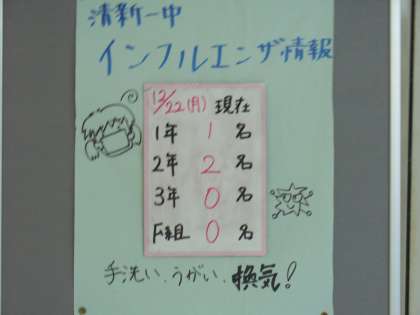 清新一中
インフルエンザ情報
12/22(月) 現在
1年 1名
2年 2名
3年 0名
F組 0名
手洗い、うがい、換気!